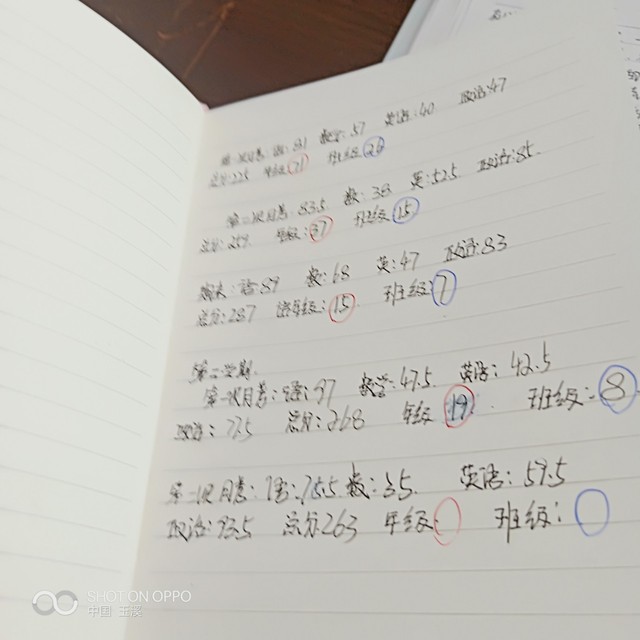 第一次月考:语:81 数学:57 英语:40 政治:47
总分:225 年级:71 班级:26
第二次月考 83.5 数:38 英:52.5 政治:85.
总分:259. 年级:37 班级:15
期末:语:89 数:68 英:47 政治:83
总分:287 年级:15 班级:7
第二学期.
第一次月考:语:97 数学:47.5 英语:42.5
政治: 总分:268 年级 19 班级:8
第二次月考:语: 数:35 英语:59.5
政治:93.5 总分263 年级: 班级:
SHOT ON OPPO
中国 玉溪